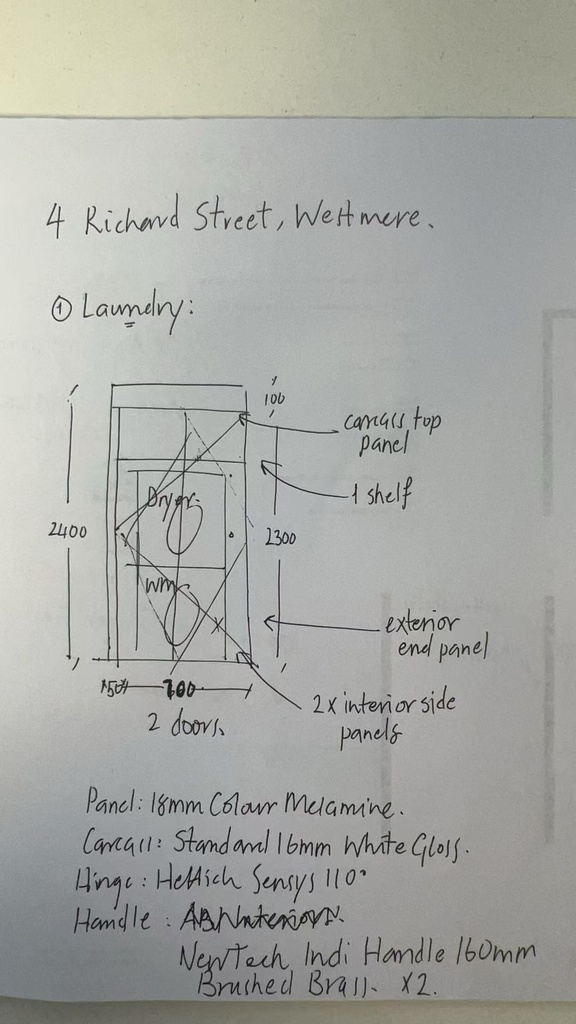 4 Richard Street, Westmere.
① Laundry:
100
carcass top
panel
1 shelf
Dryer.
2400
2300
WM
exterior
end panel
50
700
2 doors.
2x interior side
panels
Panel: 18mm Colour Melamine.
Carcass: Standard 16mm White Gloss.
Hinge: Hettich Sensys 110°
Handle:
NewTech Indi Handle 160mm
Brushed Brass. x2.